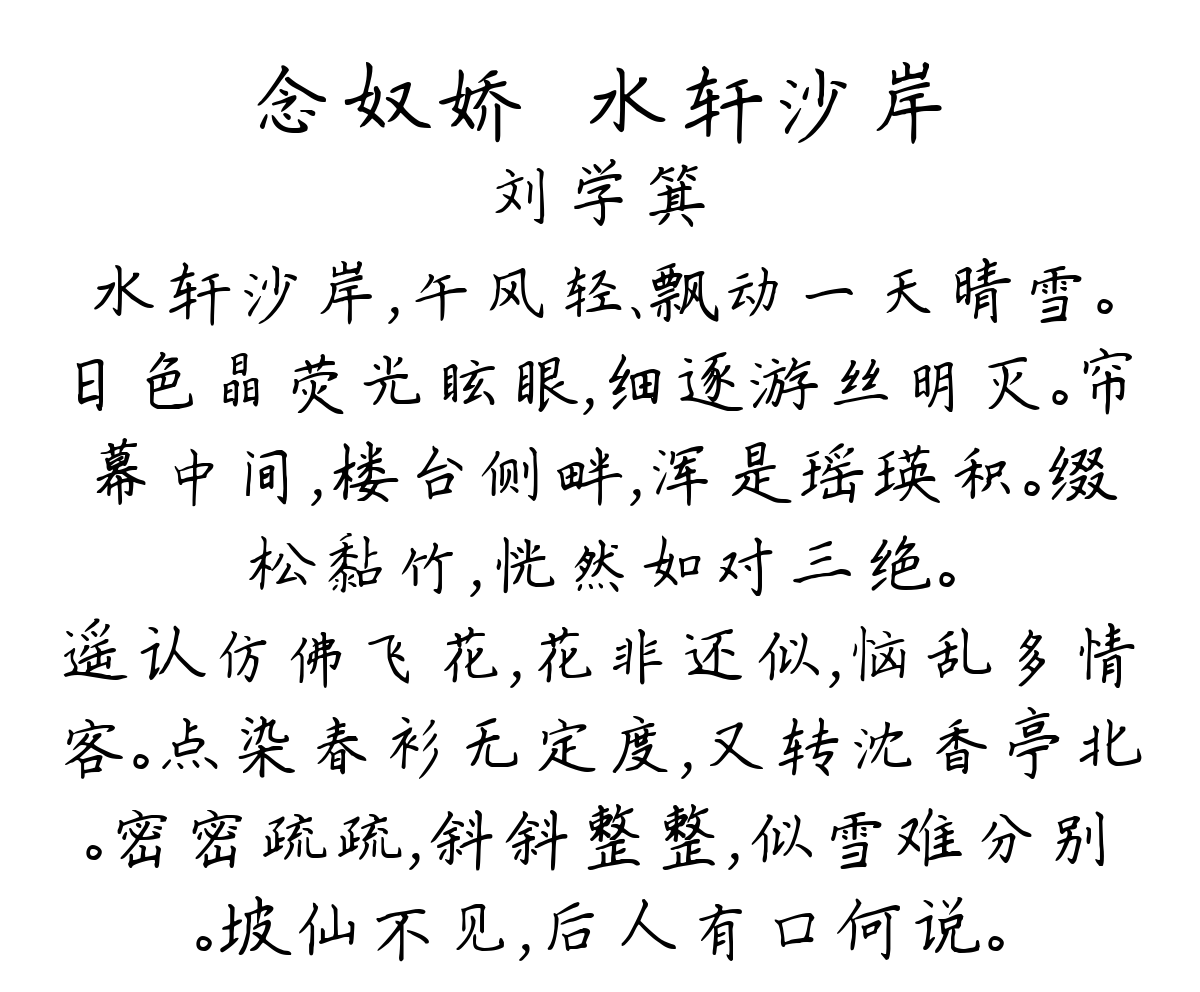 念奴娇 水轩沙岸
刘学箕
水轩沙岸,午风轻、飘动一天晴雪。
日色晶荧光眩眼,细逐游丝明灭。帘
幕中间,楼台侧畔,浑是瑶瑛积。缀
松黏竹,恍然如对三绝。
遥认仿佛飞花,花非还似,恼乱多情
客。点染春衫无定度,又转沈香亭北
。密密疏疏,斜斜整整,似雪难分别
。坡仙不见,后人有口何说。